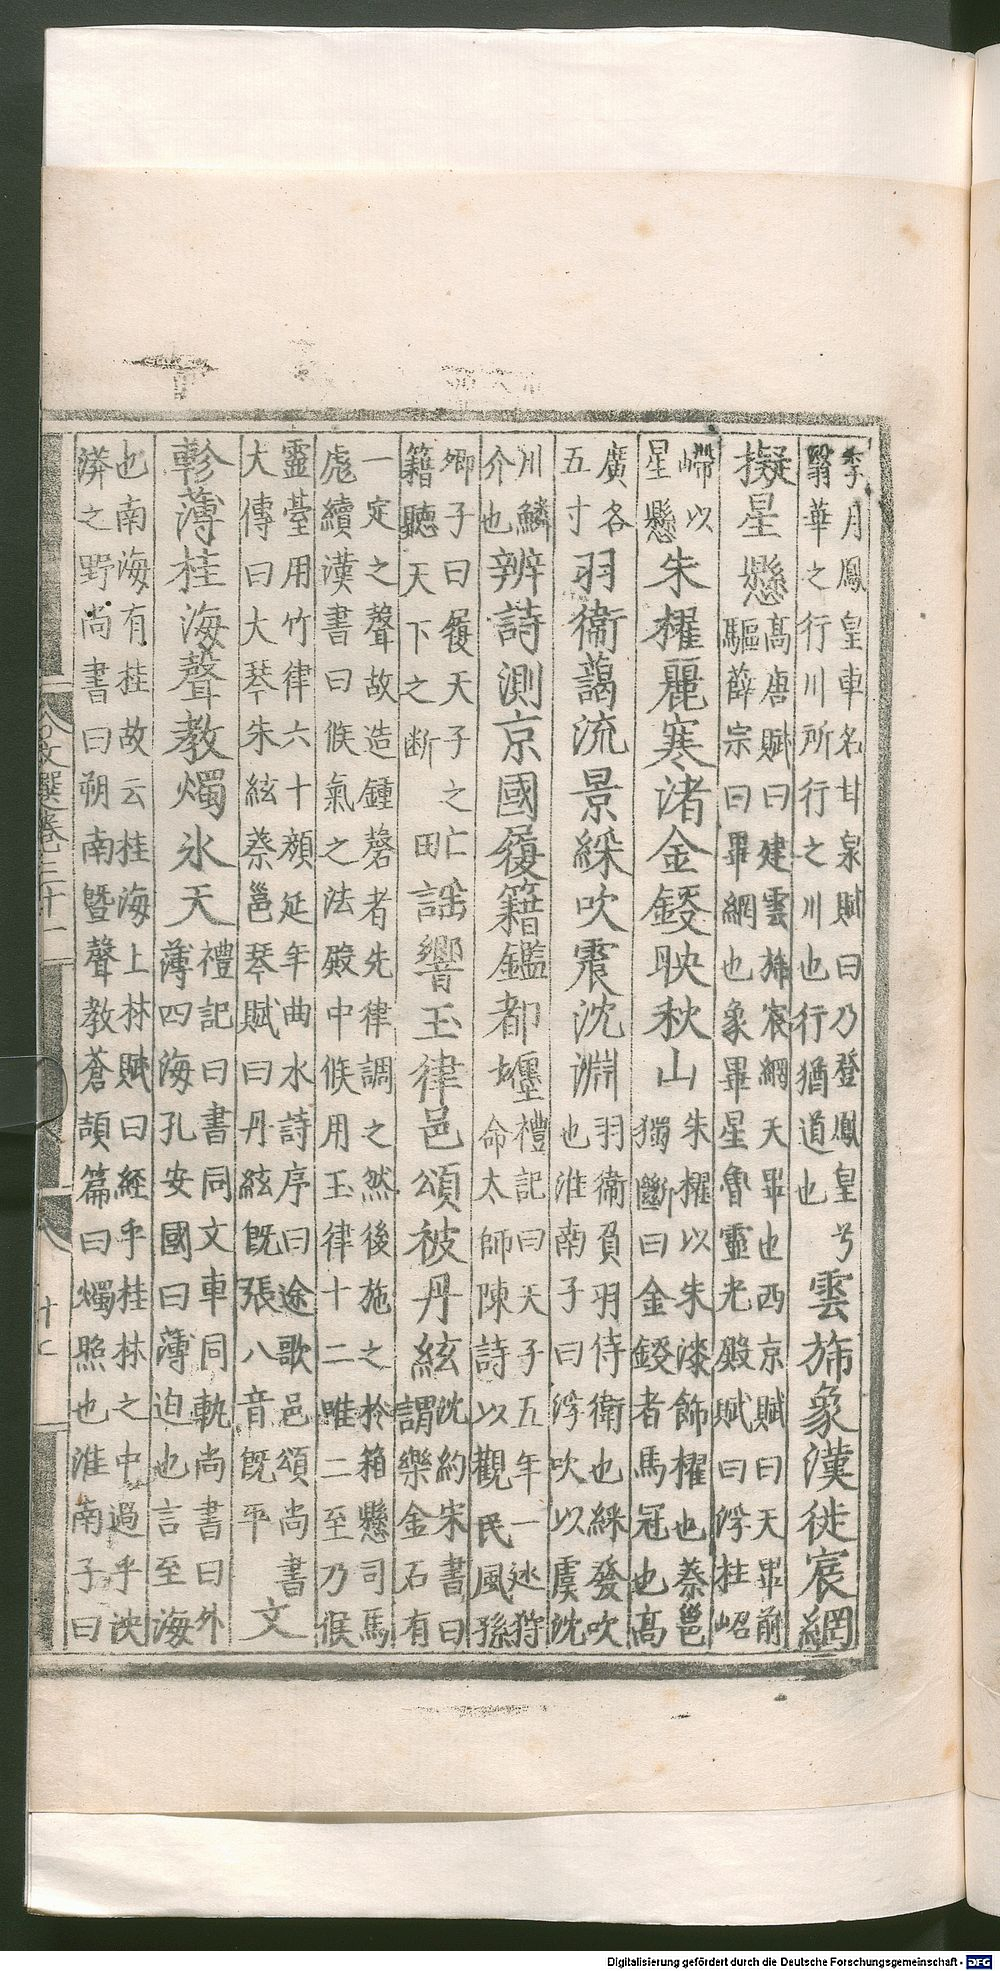 季月鳳皇車名甘泉賦曰乃登鳳皇兮
翳華之行川所行之川也行猶道也
雲斾象漢徙宸網
擬星懸
髙唐賦曰建雲斾宸網天畢也西京賦曰天畢前
驅薛宗曰畢網也象畢星魯靈光殿賦曰浮柱岹
嵽以
星懸
朱櫂麗寒渚金鍐映秋山
朱櫂以朱漆飾櫂也蔡邕
獨斷曰金鍐者馬冠也髙
廣各
五寸
羽衞藹流景綵吹震沈淵
羽衞負羽侍衛也綵發吹
也淮南子曰浮吹以虞沈
川鱗
介也
辨詩測京國履籍鑑都壥
禮記曰天子五年一巡狩
命太師陳詩以觀民風孫
卿子曰履天子之亡
籍聽天下之断田
謡響玉律邑頌被丹絃
沈約宋書曰
謂樂金石有
一定之聲故造鍾磬者先律調之然後施之於箱懸司馬
彪續漢書曰候氣之法殿中候用玉律十二唯二至乃候
靈臺用竹律六十顔延年曲水詩序曰途歌邑頌尚書
大傳曰大琴朱絃蔡邕琴賦曰丹絃旣張八音旣平
文
軫薄桂海聲教燭氷天
禮記曰書同文車同軌尚書曰外
薄四海孔安國曰薄迫也言至海
也南海有桂故云桂海上林賦曰經乎桂林之中過乎泱
漭之野尚書曰朔南曁聲教蒼頡篇曰燭照也淮南子曰
文選卷三十一
Digitalisierung gefördert durch die Deutsche Forschungsgemeinschaft - DFG